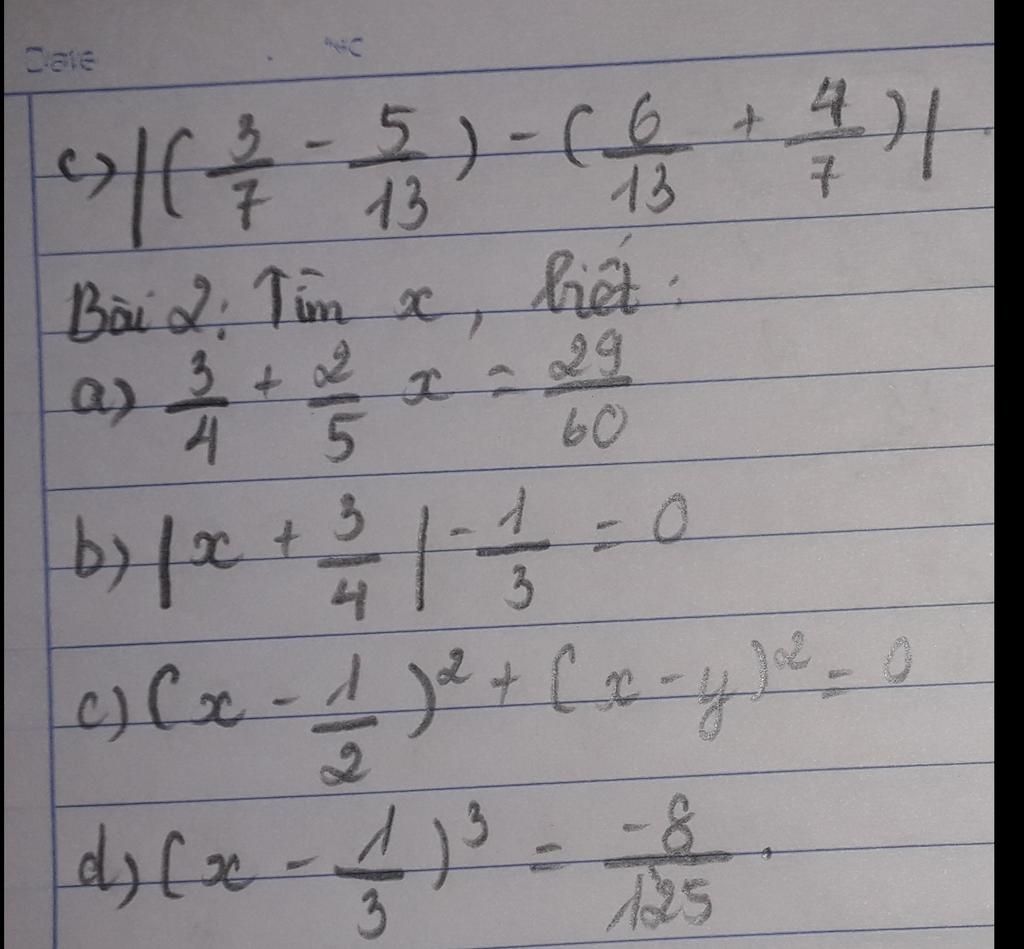 Date NC
c) |(3/7 - 5/13) - (6/13 + 4/7)|
Bài 2: Tìm x, biết:
a) 3/4 + 2/5 x = 29/60
b) |x + 3/4| - 1/3 = 0
c) (x - 1/2)² + (x - y)² = 0
d) (x - 1/3)³ = -8/125.